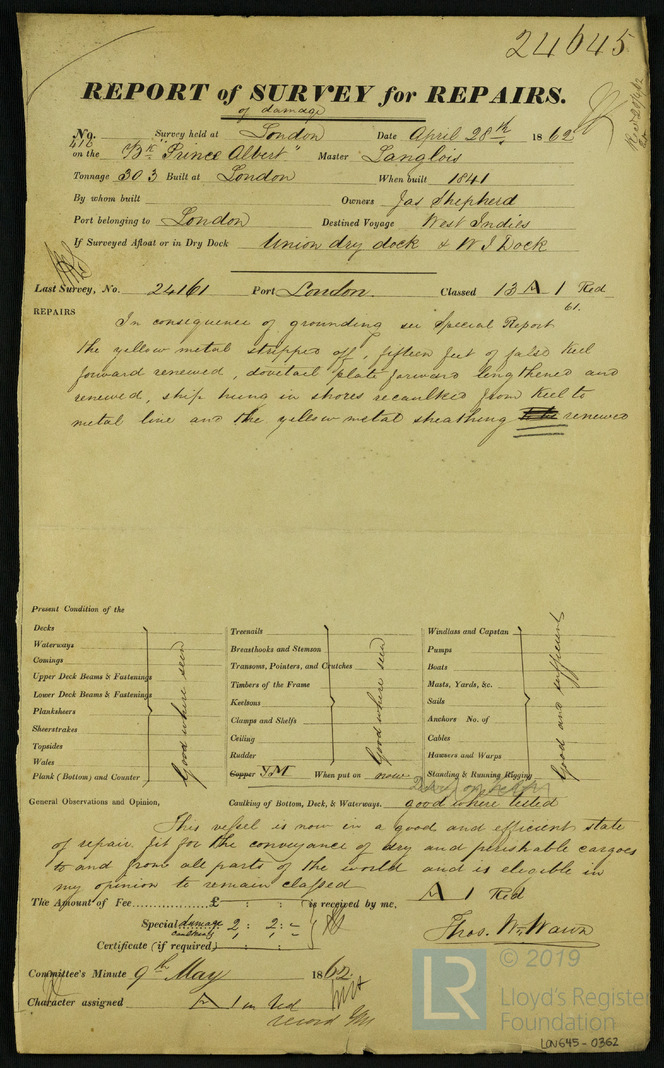 24645
REPORT of SURVEY for REPAIRS.
of damage
No. 416 Survey held at London Date April 28th 1862
on the Bk "Prince Albert" Master Langlois
Tonnage 303 Built at London When built 1841
By whom built Owners Jas Shepherd
Port belonging to London Destined Voyage West Indies
If Surveyed Afloat or in Dry Dock Union dry dock & W I Dock
Last Survey, No. 24161 Port London. Classed 13 A 1 Red
61.
REPAIRS
In consequence of grounding see Special Report
the yellow metal stripped off, fifteen feet of false keel
forward renewed, dovetail plate forward lengthened and
renewed, ship hung in shores recaulked from keel to
metal line and the yellow metal sheathing renewed
Present Condition of the
Decks
Waterways
Comings
Upper Deck Beams & Fastenings
Lower Deck Beams & Fastenings
Planksheers
Sheerstrakes
Topsides
Wales
Plank (Bottom) and Counter
Good where seen
Treenails
Breasthooks and Stemson
Transoms, Pointers, and Crutches
Timbers of the Frame
Keelsons
Clamps and Shelfs
Ceiling
Rudder
Copper YM When put on now
Good where seen
Windlass and Capstan
Pumps
Boats
Masts, Yards, &c.
Sails
Anchors No. of
Cables
Hawsers and Warps
Standing & Running Rigging
Good and sufficient
General Observations and Opinion, Caulking of Bottom, Deck, & Waterways. good where tested
This vessel is now in a good and efficient state
of repair, fit for the conveyance of dry and perishable cargoes
to and from all parts of the world and is elegible in
my opinion to remain classed A 1 Red
The Amount of Fee £ : : is received by me,
Special damage 2 : 2 : -
caulking 1 : 1 : -
Certificate (if required) : :
Thos. Wm Wawn
Committee's Minute 9th May 1862
Character assigned A 1 in Red
record YM
© 2019
LR
Lloyd's Register
Foundation
LON645-0362